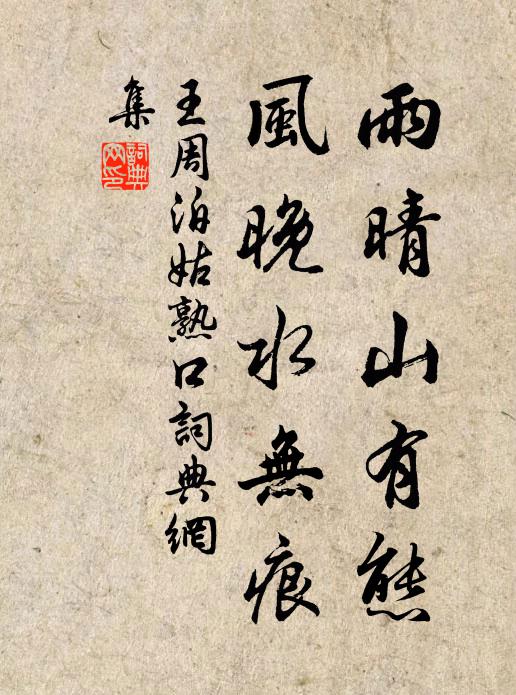 雨晴山有態
風晚水無痕
王周泊姑熟口詞典網
集
詞典網印